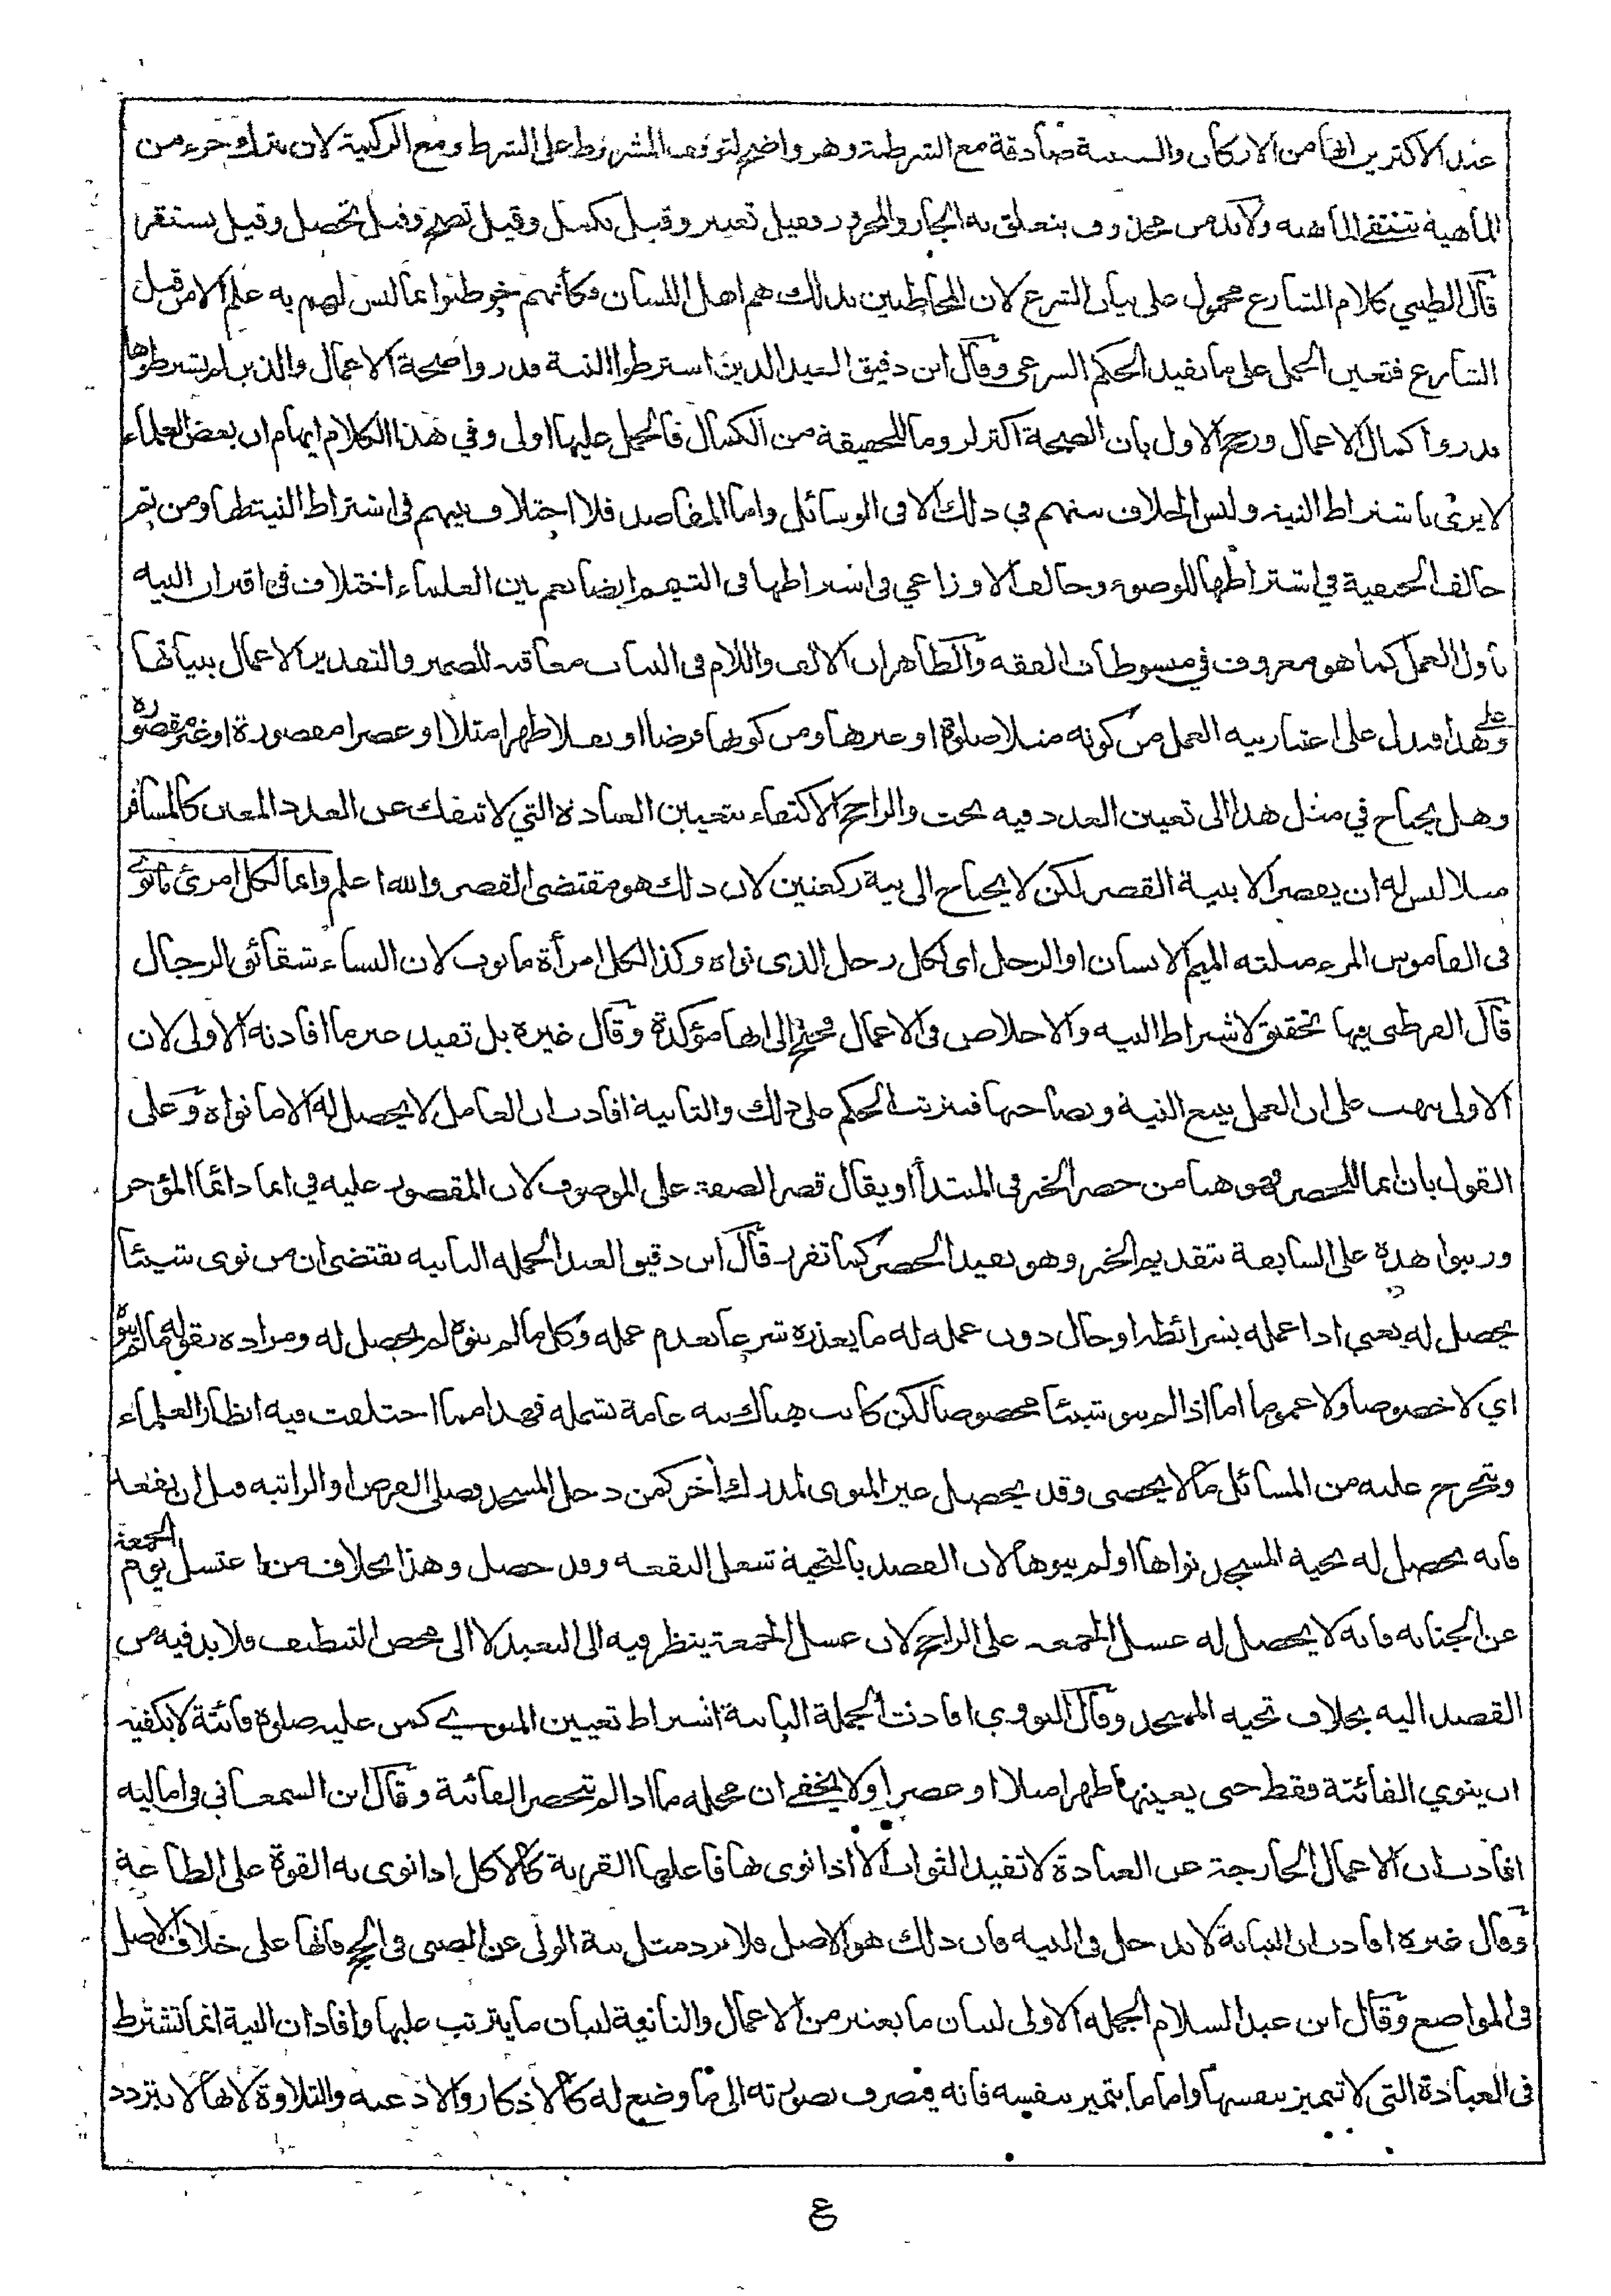 عند الاكثرين انها من الاركان والسببية صادقة مع الشرطية وهو واضح لتوقف المشروط على الشرط ومع الركنية لان بترك جزء من
الماهية تنتفي الماهية ولابد من محذوف يتعلق به الجار والمجرور فقيل تعتبر وقيل تكمل وقيل تصح وقيل تحصل وقيل تستقر
قال الطيبي كلام الشارع محمول على بيان الشرع لان المخاطبين بذلك هم اهل اللسان وكأنهم خوطبوا بما ليس لهم به علم الا من قبل
الشارع فتعين الحمل على ما يفيد الحكم الشرعي وقال ابن دقيق العيد الذين اشترطوا النية قدروا صحة الاعمال والذين لم يشترطوها
قدروا كمال الاعمال ورجح الاول بان الصحة اكثر لزوما للحقيقة من الكمال فالحمل عليها اولى وفي هذا الكلام ايهام ان بعض العلماء
لا يرى باشتراط النية وليس الخلاف بينهم في ذلك الا في الوسائل واما المقاصد فلا اختلاف بينهم في اشتراط النية لها ومن ثم
خالف الحنفية في اشتراطها للوضوء وخالف الاوزاعي في اشتراطها في التيمم ايضا نعم بين العلماء اختلاف في اقتران النية
باول العمل كما هو معروف في مبسوطات الفقه والظاهر ان الالف واللام في النيات معاقبة للضمير والتقدير الاعمال بنياتها
وعلى هذا فيدل على اعتبار نية العمل من كونه مثلا صلوة او غيرها ومن كونها فرضا او نفلا ظهرا مثلا او عصرا مقصورة او غير مقصورة
وهل يحتاج في مثل هذا الى تعيين العدد فيه بحث والراجح الاكتفاء بتعيين العبادة التي لا تنفك عن العدد المعين كالمسافر
مثلا ليس له ان يقصر الا بنية القصر لكن لا يحتاج الى نية ركعتين لان ذلك هو مقتضى القصر والله اعلم وانما لكل امرئ ما نوى
في القاموس المرء مثلثة الميم الانسان او الرجل اي لكل رجل الذي نواه وكذا لكل امرأة ما نوت لان النساء شقائق الرجال
قال القرطبي فيها تحقيق لاشتراط النية والاخلاص في الاعمال فجنح الى انها مؤكدة وقال غيره بل تفيد غير ما افادته الاولى لان
الاولى نبهت على ان العمل يتبع النية ويصاحبها فيترتب الحكم على ذلك والثانية افادت ان العامل لا يحصل له الا ما نواه وعلى
القول بان انما للحصر فهو هنا من حصر الخبر في المبتدأ او يقال قصر الصفة على الموصوف لان المقصور عليه في انما دائما المؤخر
ورتبوا هذه على السابقة بتقديم الخبر وهو يفيد الحصر كما تقرر قال ابن دقيق العيد الجملة الثانية تقتضي ان من نوى شيئا
يحصل له يعني اذا عمله بشرائطه او حال دون عمله له ما يعذره شرعا بعدم عمله وكل ما لم ينوه لم يحصل له ومراده بقوله ما لم ينوه
اي لا خصوصا ولا عموما اما اذا لم ينو شيئا مخصوصا لكن كانت هناك نية عامة تشمله فهذا مما اختلفت فيه انظار العلماء
ويتخرج عليه من المسائل ما لا يحصى وقد يحصل غير المنوى لمدرك آخر كمن دخل المسجد فصلى الفرض او الراتبة قبل ان يقعد
فانه يحصل له تحية المسجد نواها او لم ينوها لان القصد بالتحية شغل البقعة وقد حصل وهذا بخلاف من اغتسل يوم الجمعة
عن الجنابة فانه لا يحصل له غسل الجمعة على الراجح لان غسل الجمعة ينظر فيه الى التعبد لا الى محض التنظيف فلا بد فيه من
القصد اليه بخلاف تحية المسجد وقال النووي افادت الجملة الثانية اشتراط تعيين المنوي كمن عليه صلوة فائتة لا يكفيه
ان ينوي الفائتة فقط حتى يعينها ظهرا مثلا او عصرا ولا يخفى ان محله ما اذا لم تنحصر الفائتة وقال ابن السمعاني في اماليه
افادت ان الاعمال الخارجة عن العبادة لا تفيد الثواب الا اذا نوى بها فاعلها القربة كالاكل اذا نوى به القوة على الطاعة
وقال غيره افادت ان النيابة لا تدخل في النية فان ذلك هو الاصل فلا يرد مثل نية الولي عن الصبي في الحج فانها على خلاف الاصل
في المواضع وقال ابن عبد السلام الجملة الاولى لبيان ما يعتبر من الاعمال والثانية لبيان ما يترتب عليها وافاد ان النية انما تشترط
في العبادة التي لا تتميز بنفسها واما ما يتميز بنفسه فانه ينصرف بصورته الى ما وضع له كالاذكار والادعية والتلاوة لانها لا تتردد
ع